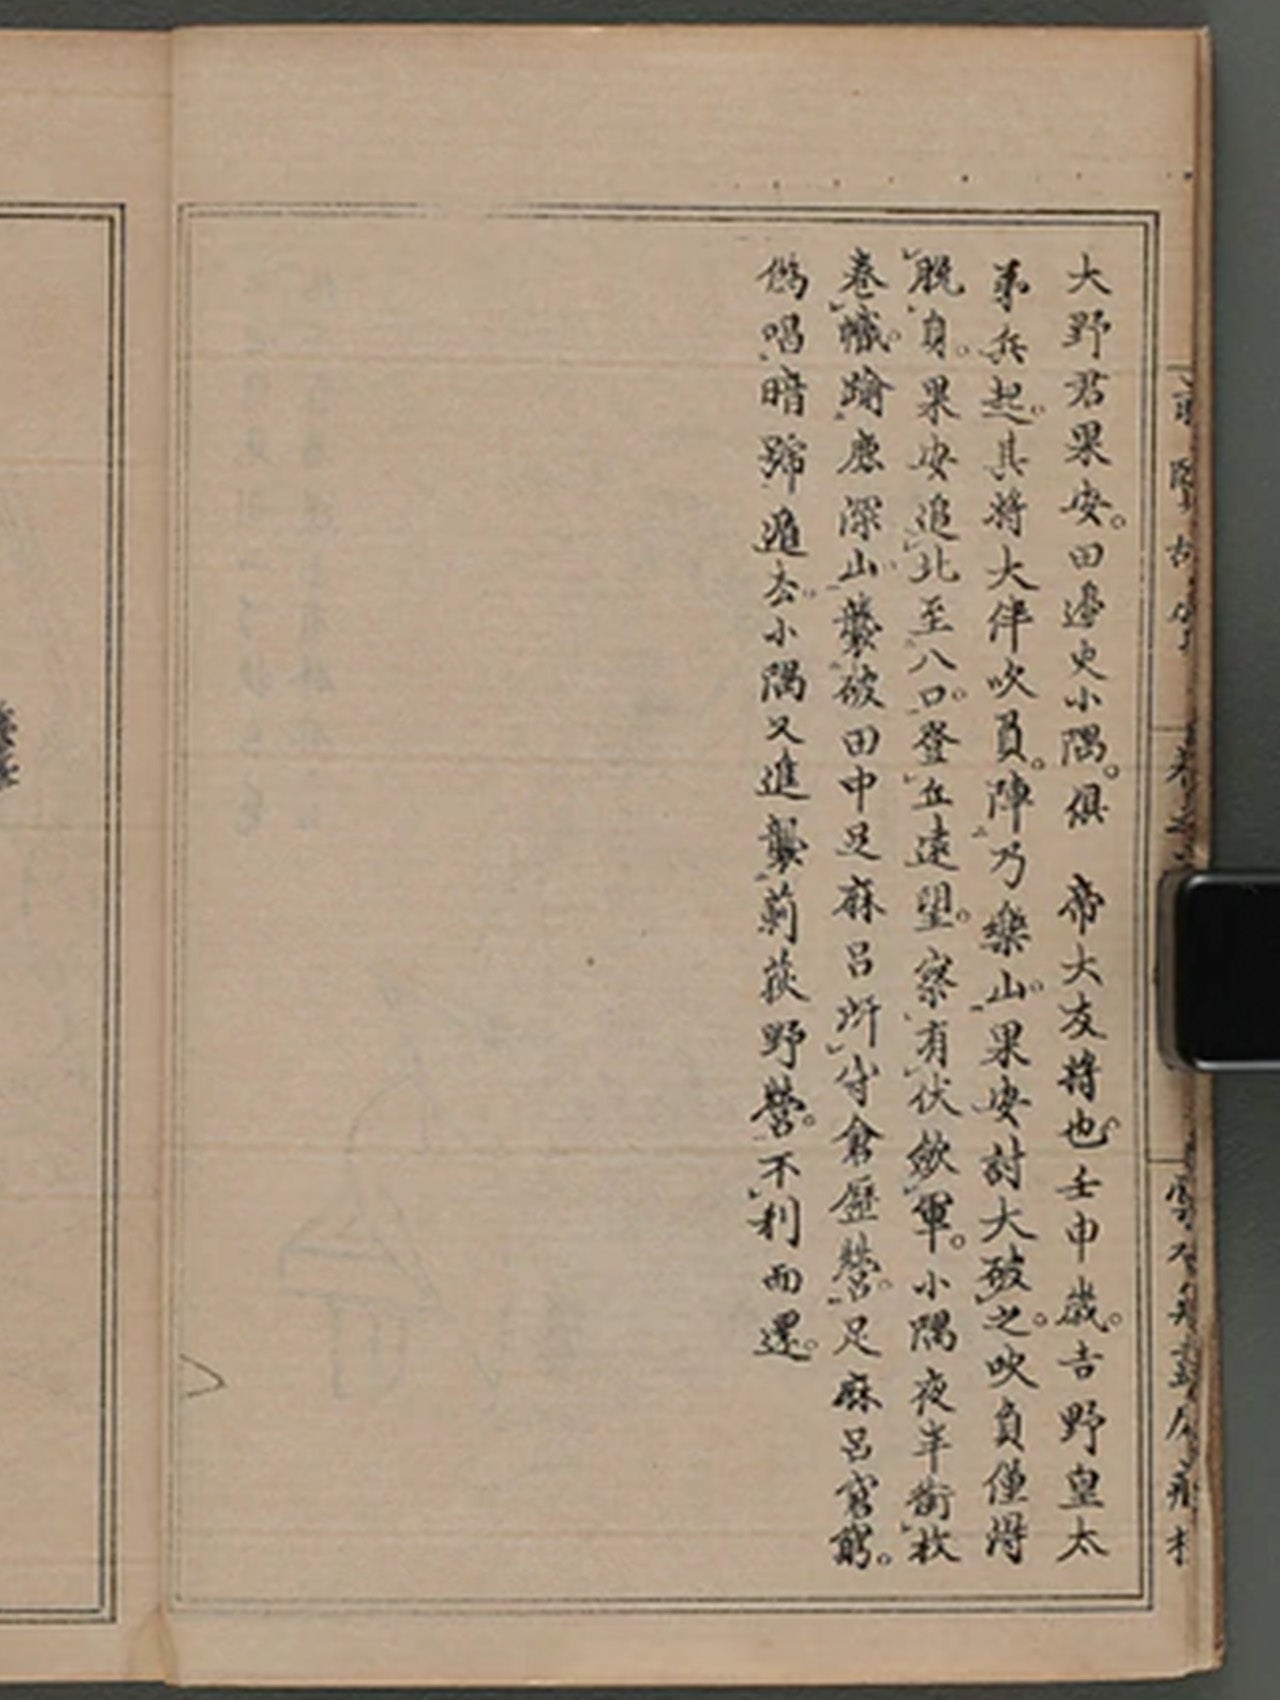 大野君果安。田邊史小隅。俱　帝大友將也。壬申歲。吉野皇太
弟兵起。其將大伴吹負。陣乃樂山。果安討大破之。吹負僅得
脫身。果安追北至八口。登丘遠望。察有伏斂軍。小隅夜半銜枚
卷幟踰鹿深山。襲破田中足麻呂所守倉歷營。足麻呂窘窮。
僞唱暗號遁去。小隅又進襲莿萩野營。不利而還。